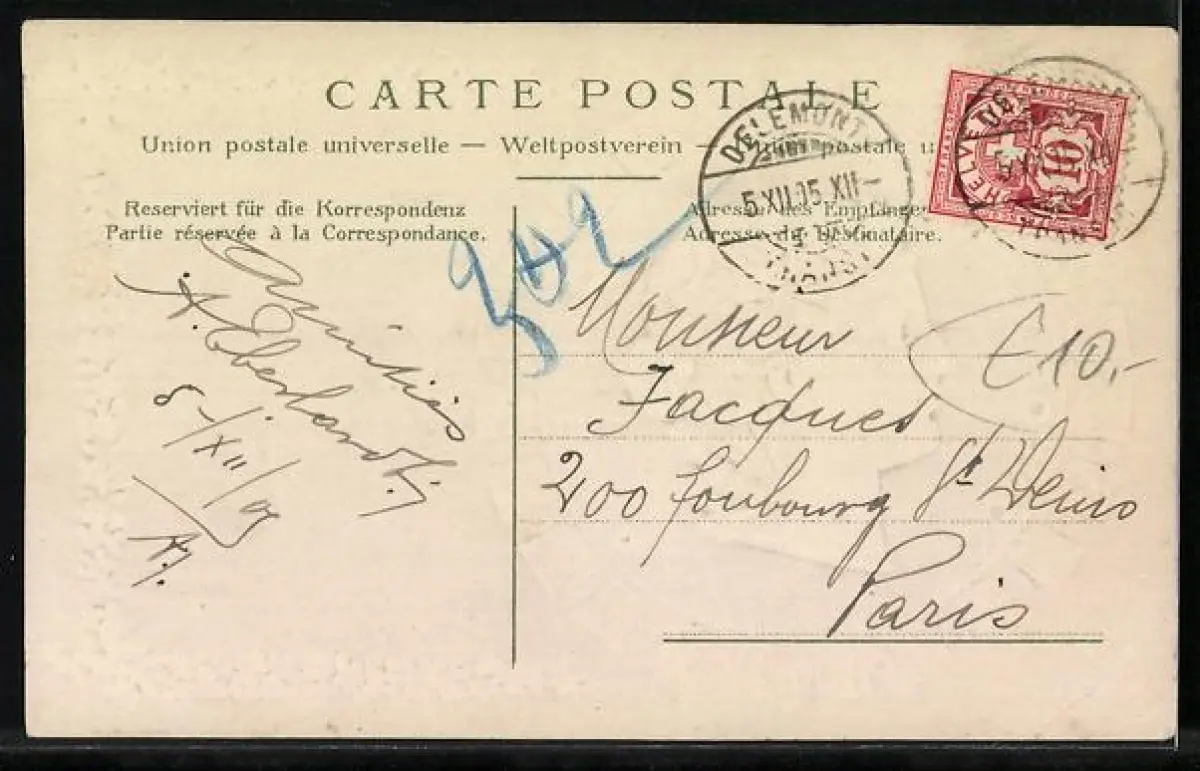 CARTE POSTALE
Union postale universelle — Weltpostverein — Union postale u
Reserviert für die Korrespondenz
Partie réservée à la Correspondance.
Adresse des Empfänge
Adresse du Destinataire.
DELÉMONT
5 XII 05 XII—
HELVE
10
Amitiés
A. Eberhardt.
5/XII/05
Monsieur
Jacques
200 foubourg St Denis
Paris
€ 10.-